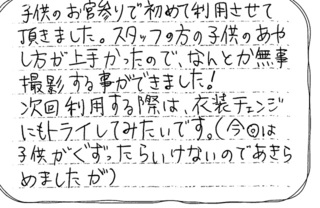 子供のお宮参りで初めて利用させて
頂きました。スタッフの方の子供のあや
し方が上手かったので、なんとか無事
撮影する事ができました!
次回利用する際は、衣装チェンジ
にもトライしてみたいです。(今回は
子供がぐずったらいけないのであきら
めましたが)